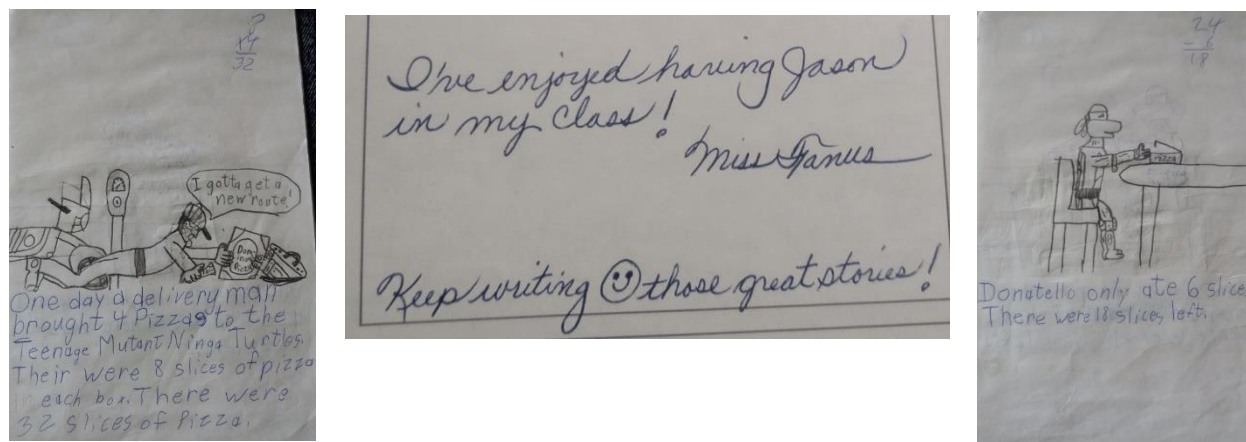 8
x4
32
I gotta get a
new route!
Dom-
inos
Pizza
One day a delivery man
brought 4 Pizzas to the
Teenage Mutant Ninga Turtles.
Their were 8 slices of pizza
in each box. There were
32 slices of Pizza.
I've enjoyed having Jason
in my class!
Miss Fanus
Keep writing those great stories!
24
- 6
18
Pizza
Donatello only ate 6 slice
There were 18 slices left.